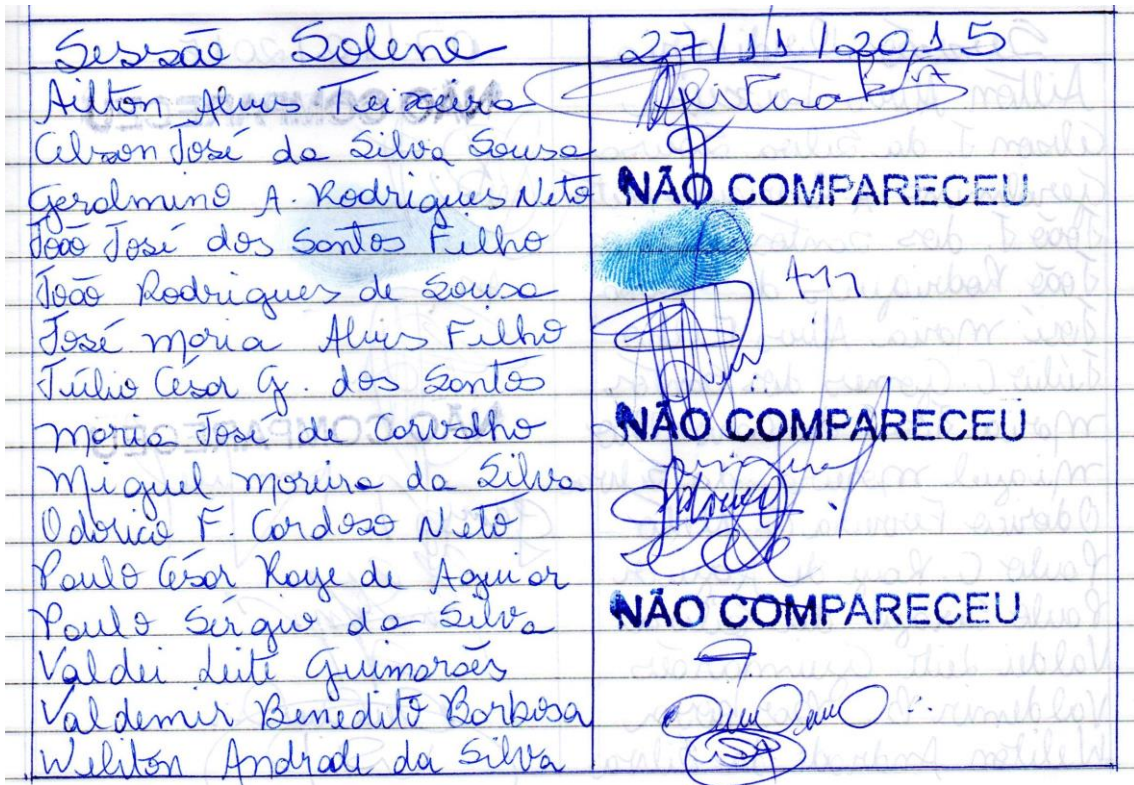 Sessão Solene 27/11/2015
Ailton Alves Teixeira
Celson José da Silva Sousa
Geralmino A. Rodrigues Neto NÃO COMPARECEU
João José dos Santos Filho
João Rodrigues de Sousa
José Maria Alves Filho
Júlio César G. dos Santos
Maria José de Carvalho NÃO COMPARECEU
Miguel Moreira da Silva
Odorico F. Cardoso Neto
Paulo César Raye de Aguiar
Paulo Sérgio da Silva NÃO COMPARECEU
Valdei Leite Guimarães
Valdemir Benedito Barbosa
Weliton Andrade da Silva